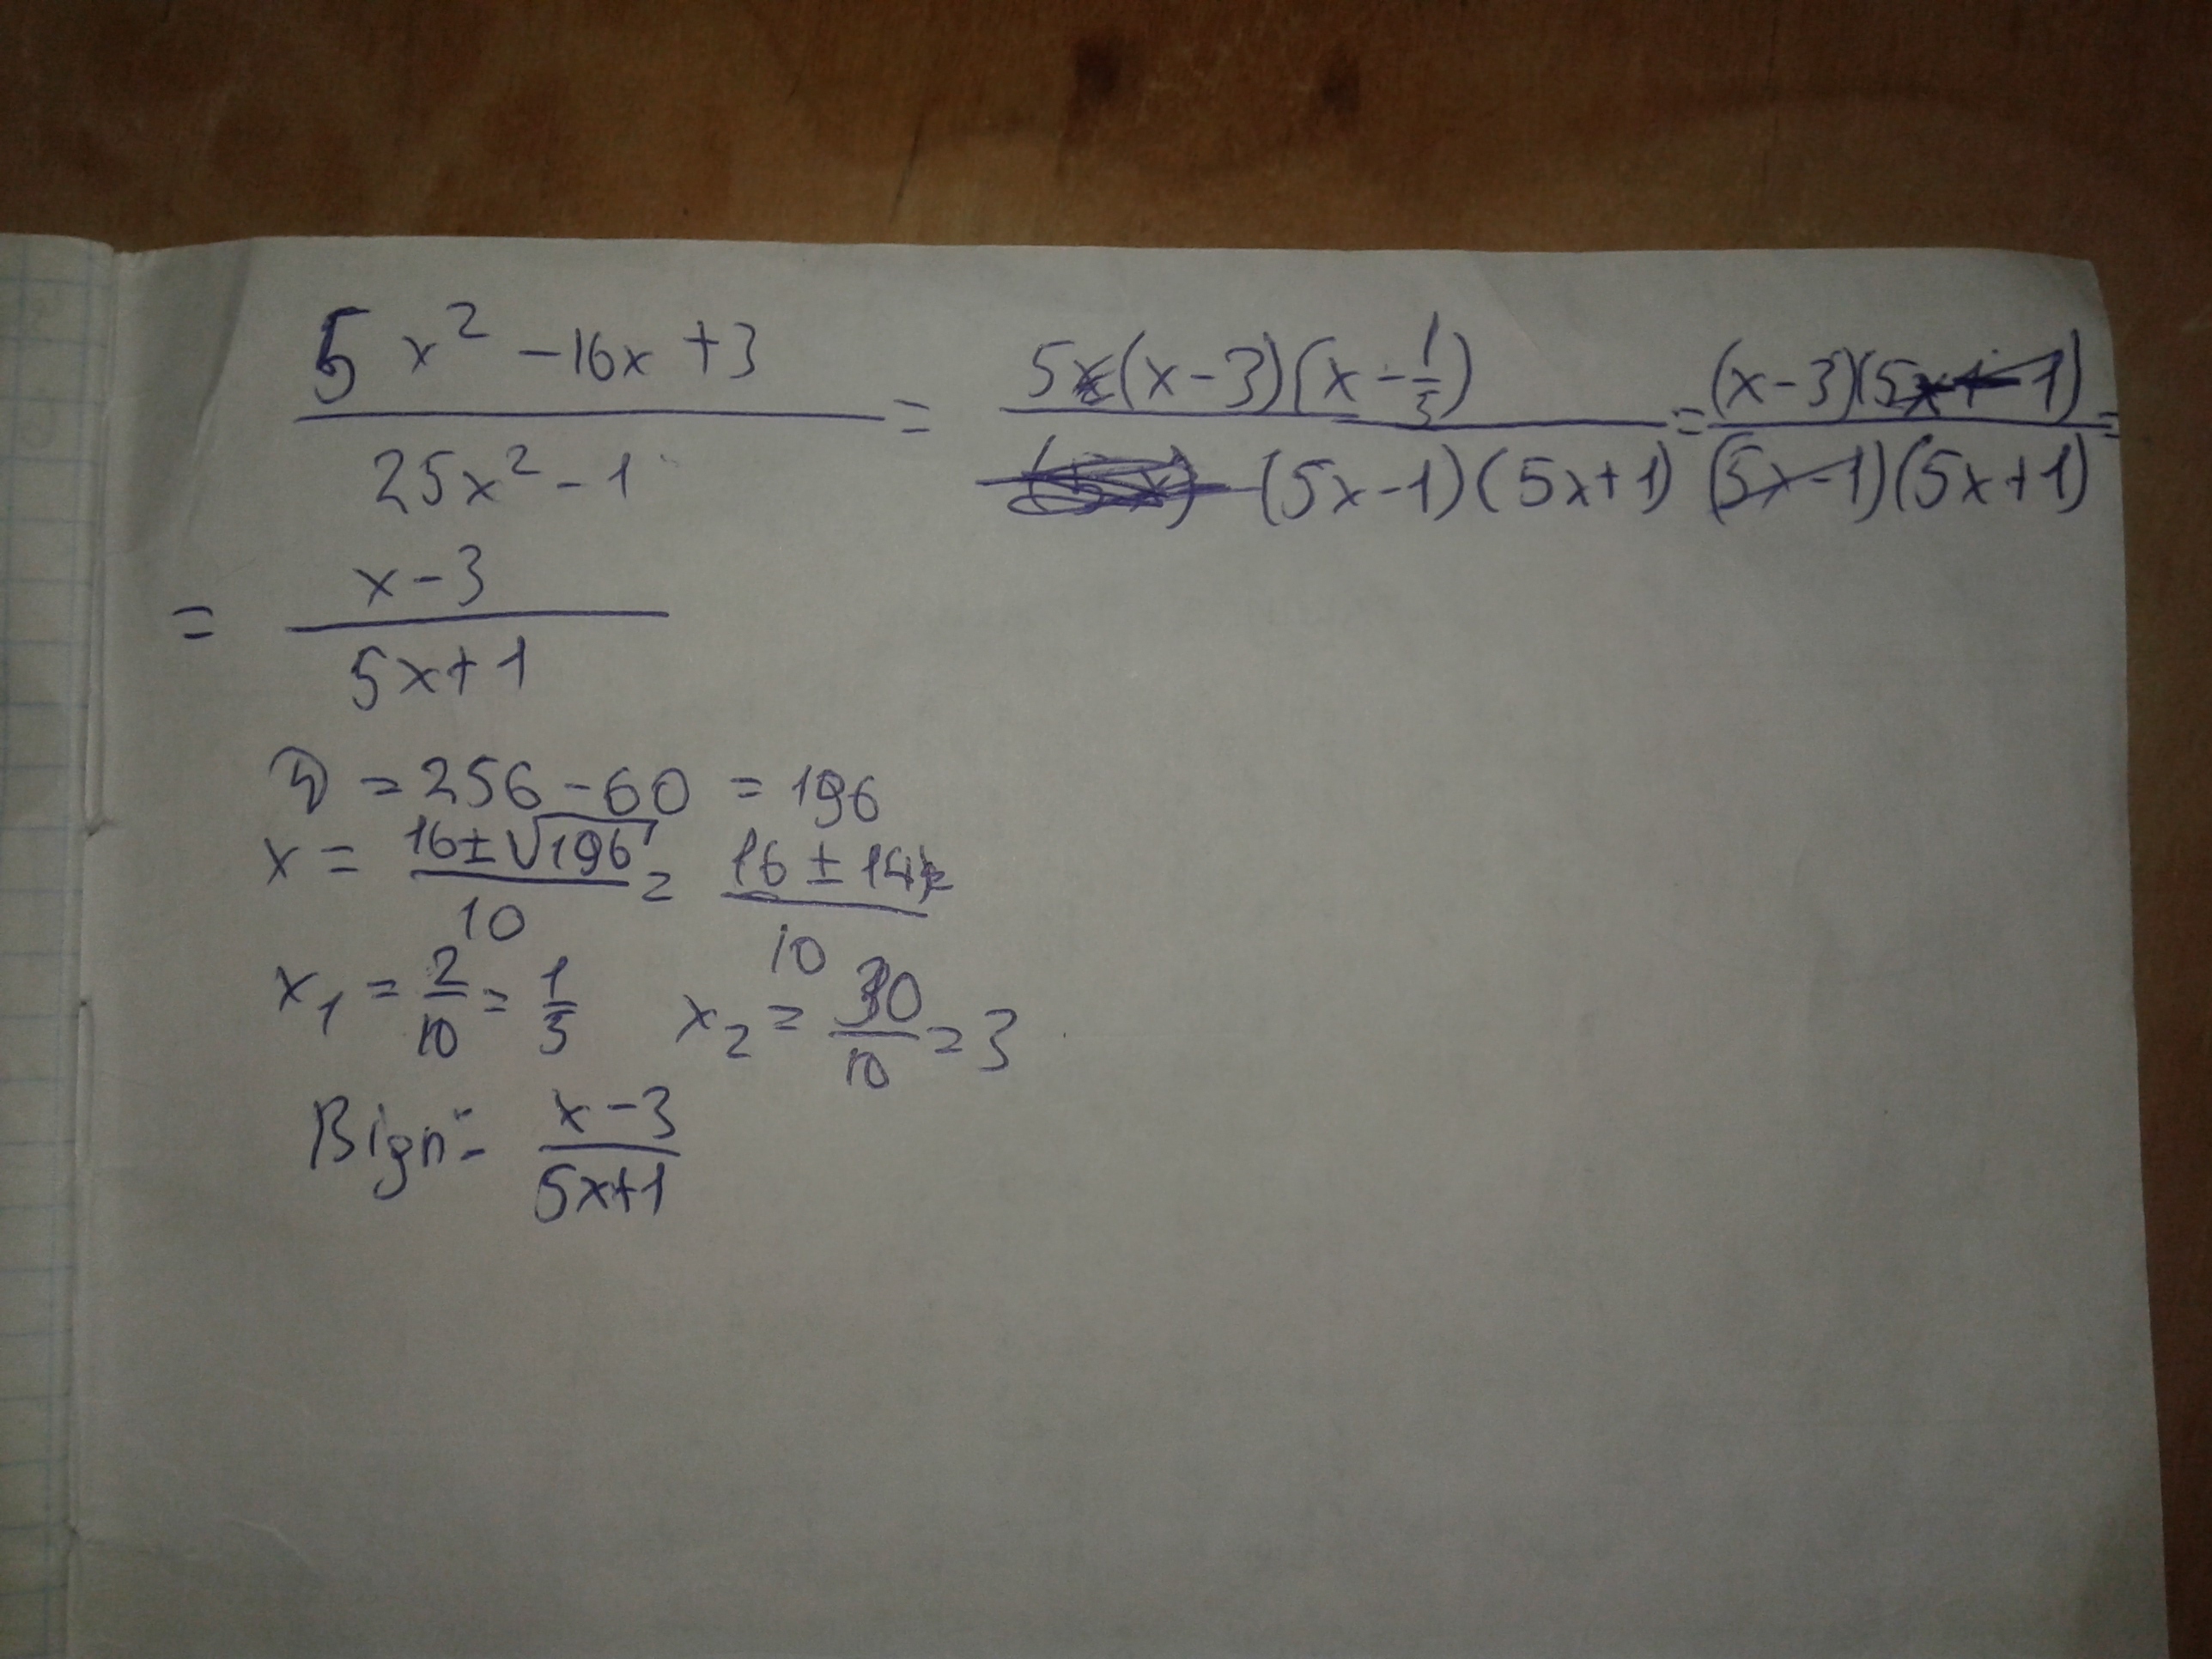 (5x² - 16x + 3)/(25x² - 1) = 5(x - 3)(x - 1/5)/((5x - 1)(5x + 1)) = (x - 3)(5x - 1)/((5x - 1)(5x + 1)) =
= (x - 3)/(5x + 1)
D = 256 - 60 = 196
x = (16 ± √196)/10 = (16 ± 14)/10
x₁ = 2/10 = 1/5 x₂ = 30/10 = 3
Відп: (x - 3)/(5x + 1)